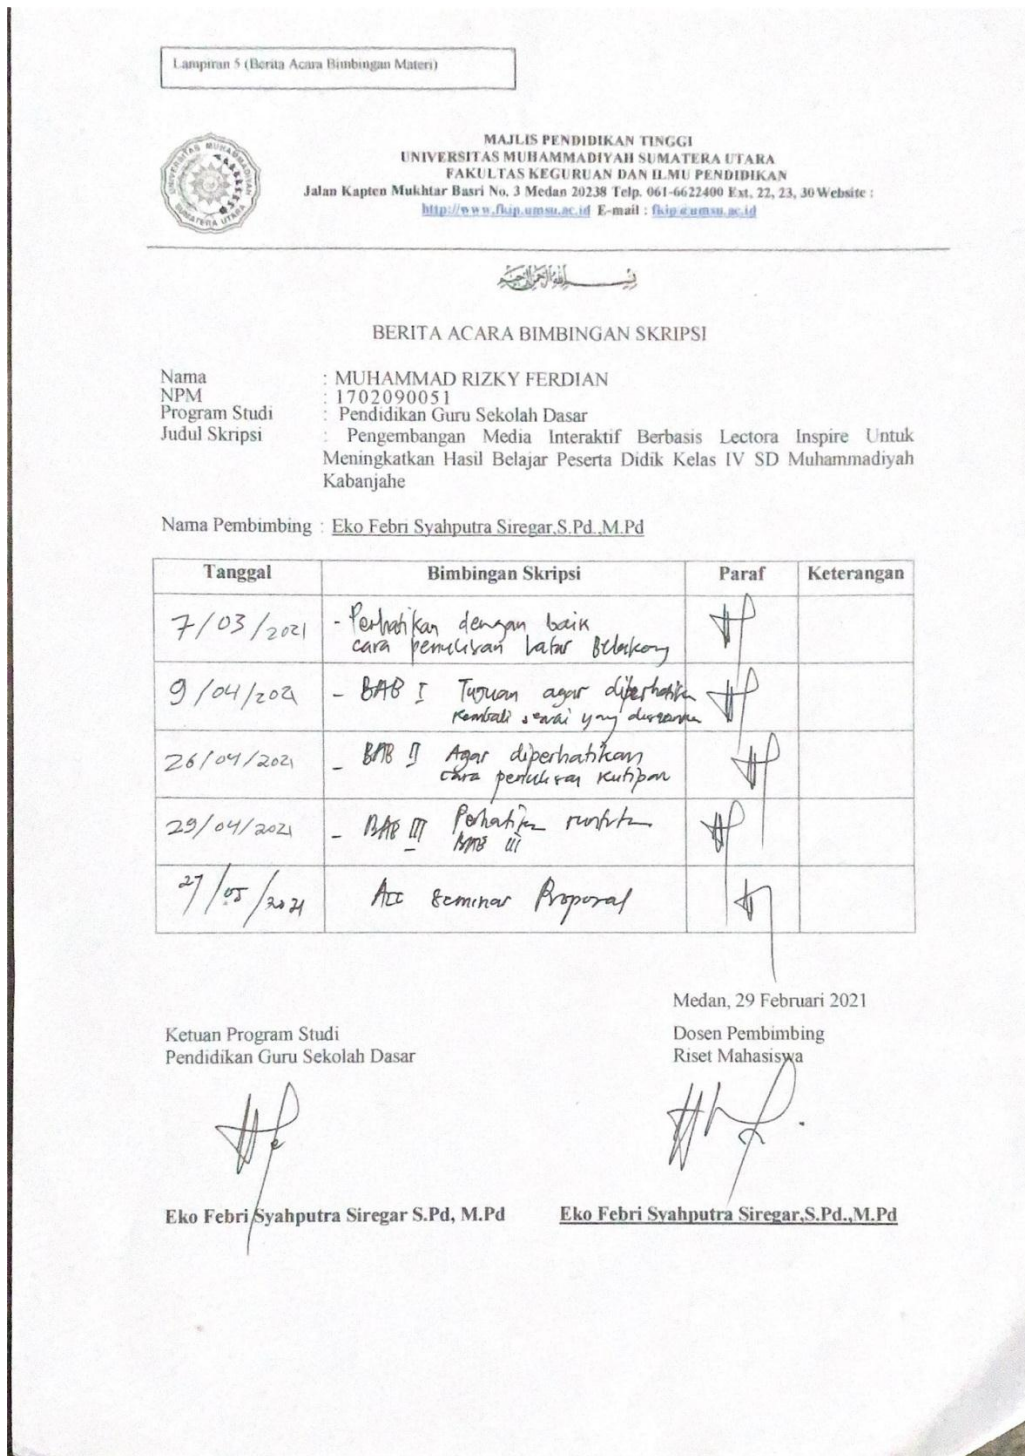 Lampiran 5 (Berita Acara Bimbingan Materi)
MAJLIS PENDIDIKAN TINGGI
UNIVERSITAS MUHAMMADIYAH SUMATERA UTARA
FAKULTAS KEGURUAN DAN ILMU PENDIDIKAN
Jalan Kapten Mukhtar Basri No. 3 Medan 20238 Telp. 061-6622400 Ext, 22, 23, 30 Website :
http://www.fkip.umsu.ac.id E-mail : fkip@umsu.ac.id
UNIVERSITAS MUHAMMADIYAH
SUMATERA UTARA
بسم الله الرحمن الرحيم
BERITA ACARA BIMBINGAN SKRIPSI
Nama : MUHAMMAD RIZKY FERDIAN
NPM : 1702090051
Program Studi : Pendidikan Guru Sekolah Dasar
Judul Skripsi : Pengembangan Media Interaktif Berbasis Lectora Inspire Untuk
Meningkatkan Hasil Belajar Peserta Didik Kelas IV SD Muhammadiyah
Kabanjahe
Nama Pembimbing : Eko Febri Syahputra Siregar,S.Pd.,M.Pd
Tanggal Bimbingan Skripsi Paraf Keterangan
7/03/2021 - Perhatikan dengan baik
cara penulisan Latar Belakang
9/04/2021 - BAB I Tujuan agar diperhatikan
kembali sesuai yang
26/04/2021 - BAB II Agar diperhatikan
cara penulisan kutipan
29/04/2021 - BAB III Perhatikan
BAB III
27/05/2021 Acc Seminar Proposal
Medan, 29 Februari 2021
Ketuan Program Studi Dosen Pembimbing
Pendidikan Guru Sekolah Dasar Riset Mahasiswa
Eko Febri Syahputra Siregar S.Pd, M.Pd Eko Febri Syahputra Siregar,S.Pd.,M.Pd